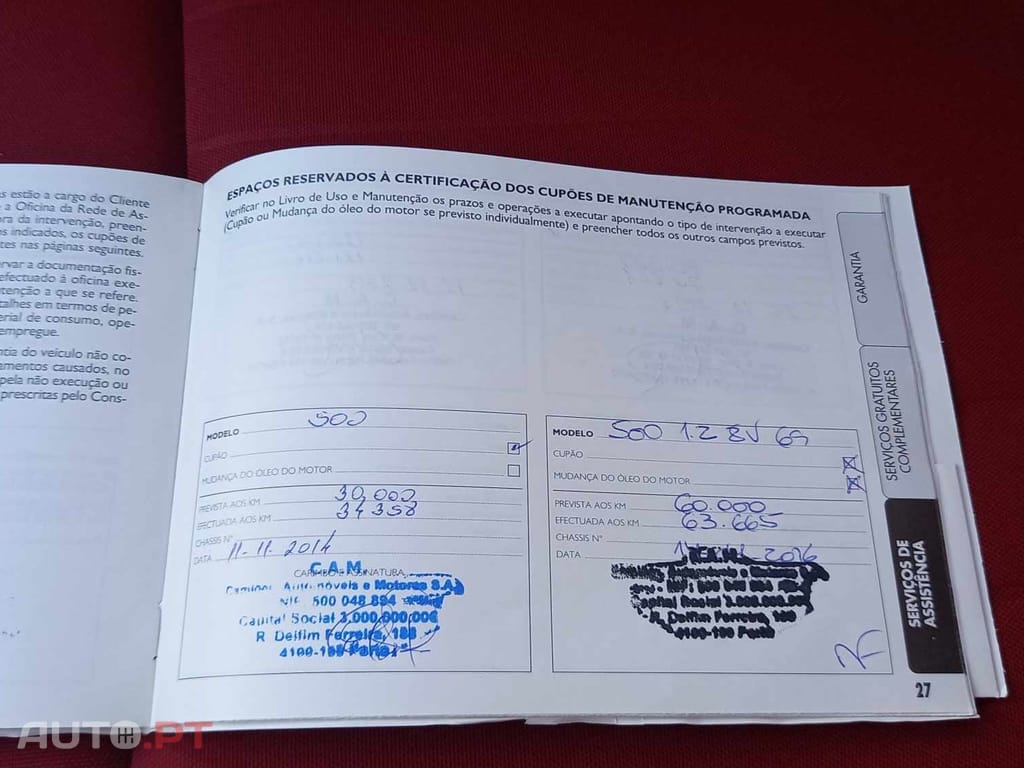 s estão a cargo do Cliente
e a Oficina da Rede de As-
ora da intervenção, preen-
os indicados, os cupões de
tes nas páginas seguintes.
rvar a documentação fis-
efectuado à oficina exe-
tenção a que se refere.
talhes em termos de pe-
erial de consumo, ope-
empregue.
ntia do veículo não co-
amentos causados, no
pela não execução ou
prescritas pelo Cons-
ESPAÇOS RESERVADOS À CERTIFICAÇÃO DOS CUPÕES DE MANUTENÇÃO PROGRAMADA
Verificar no Livro de Uso e Manutenção os prazos e operações a executar apontando o tipo de intervenção a executar
(Cupão ou Mudança do óleo do motor se previsto individualmente) e preencher todos os outros campos previstos.
MODELO 500
CUPÃO
MUDANÇA DO ÓLEO DO MOTOR
PREVISTA AOS KM 30,000
EFECTUADA AOS KM 34358
CHASSIS Nº
DATA 11-11-2014
CARIMBO E ASSINATURA
C.A.M.
Automóveis e Motores S.A.
500 048 894
Capital Social 3.000.000,00€
R. Delfim Ferreira, 188
4100-199 Porto
MODELO 500 1.2 8V 69
CUPÃO
MUDANÇA DO ÓLEO DO MOTOR
PREVISTA AOS KM 60.000
EFECTUADA AOS KM 63.665
CHASSIS Nº
DATA 2016
Capital Social 3.000.000,00
R. Delfim Ferreira, 188
4100-199 Porto
GARANTIA
SERVIÇOS GRATUITOS
COMPLEMENTARES
SERVIÇOS DE
ASSISTÊNCIA
27
AUTO.PT